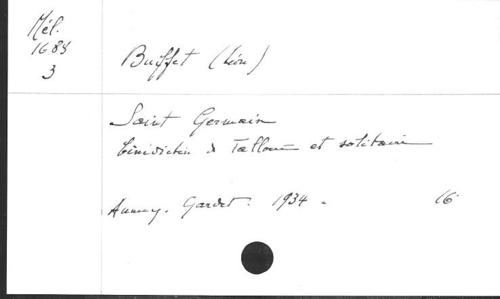 Mél.
1684
3
Buffet (Léon)
Saint Germain
bénédictin de Talloires et solitaire
Annecy. Gardet. 1934 - 16